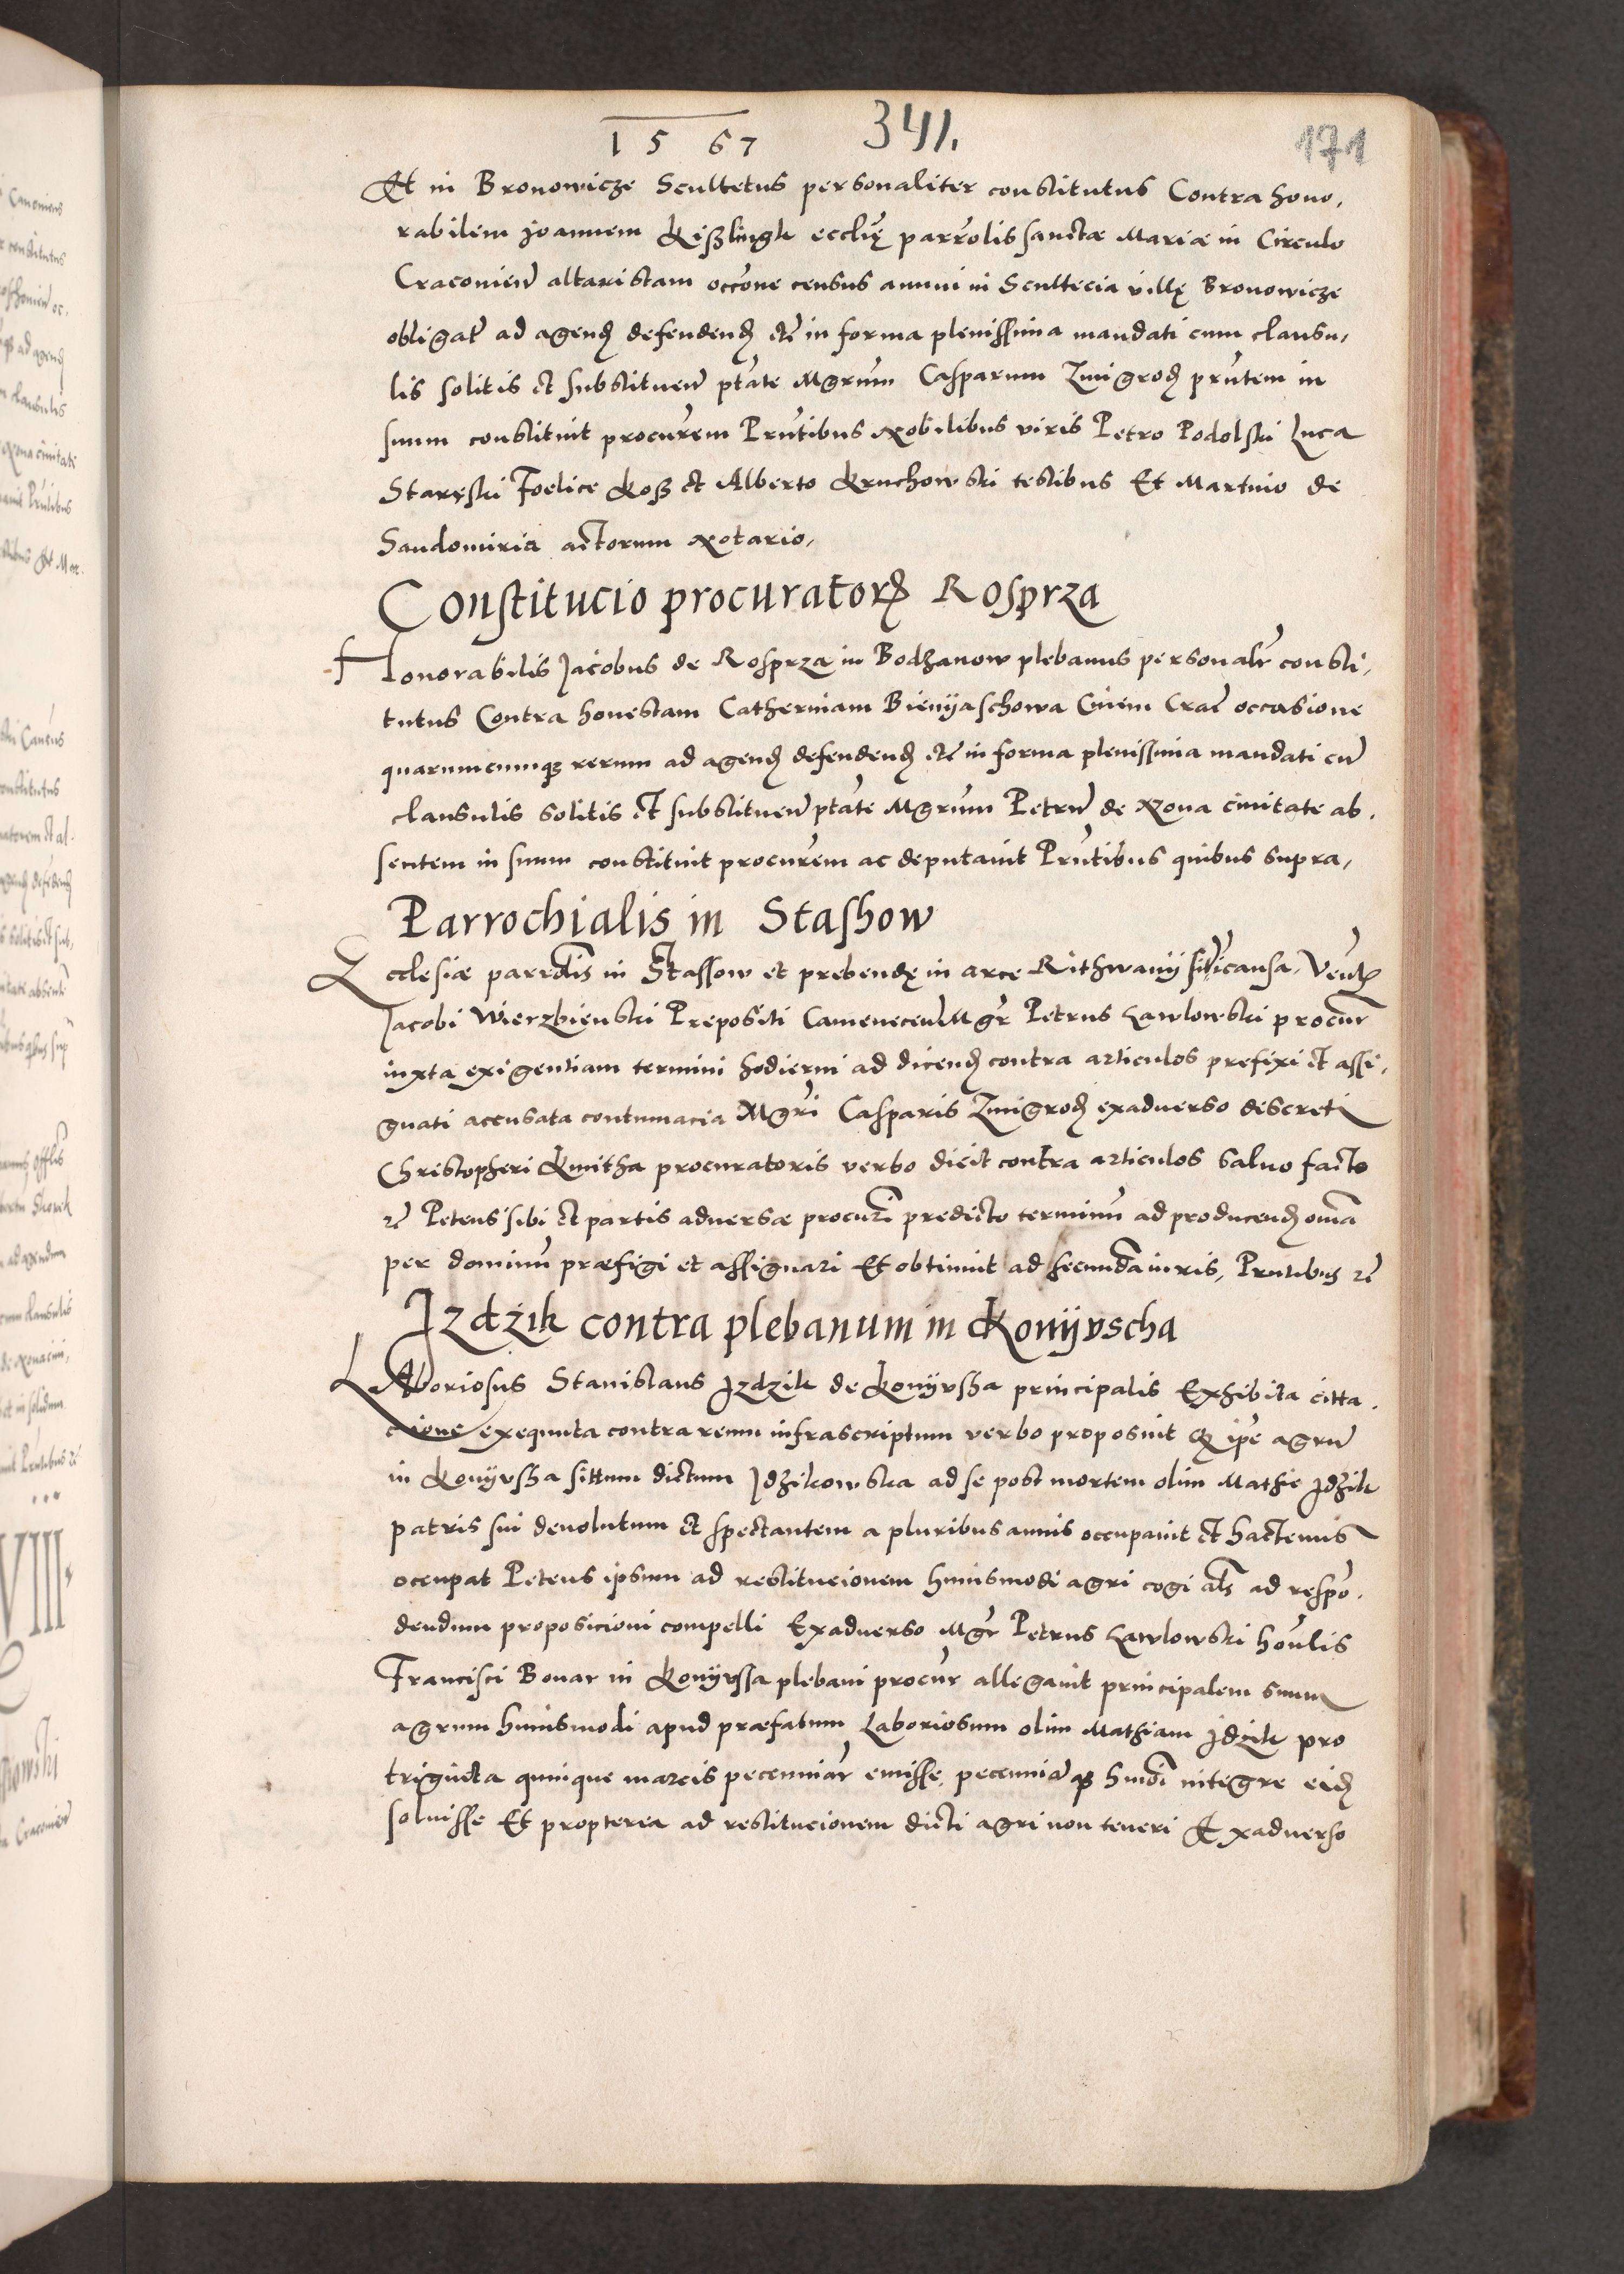 1567
341.
171
Et in Bronowicze Scultetus personaliter constitutus Contra hono,
rabilem Joannem Kißlingk ecclię parrolis sanctæ Mariæ in Circulo
Craconien altaristam occone census annui in Scultecia villę Bronowicze
obligat ad agend defendend etc in forma plenissima mandati cum clausu,
lis solitis et substituen ptate Mgrum Casparum Zmigrod prntem in
suum constituit procurem Prntibus Nobilibus viris Petro Podolski Luca
Staręski Foelice Koß et Alberto Kruchowski testibus Et Martino de
Sandomiria actorum Notario,
Constitucio procurator Rosprza
Honorabilis Jacobus de Rosprza in Bodzanow plebanus personalr consti,
tutus Contra honestam Catherinam Bienijaschowa Civem Crac occasione
quarumcumq rerum ad agend defendend etc in forma plenissima mandati cu
clausulis solitis et substituen ptate Mgrum Petru de Nova civitate ab,
sentem in suum constituit procurem ac deputavit Prntibus quibus supra,
Parrochialis in Stashow
Ecclesiæ parrolis in Stassow et prebendę in arce Rithwanij sit causa, Venlis
Jacobi Wierzbienski Prepositi Camenecen Mgr Petrus Lawlowski procur
iuxta exigentiam termini hodierni ad dicend contra articulos prefixi et assi,
gnati accusata contumacia Mgri Casparis Zmigrod exadverso discreti
Christopheri Kmitha procuratoris verbo dicit contra articulos salvo facto
etc Petens sibi et partis adversæ procuri predicto terminu ad producend omnia
per dominu præfigi et assignari Et obtinuit ad secunda iuris, Prntibus etc
Jzdzik contra plebanum in Konijvscha
Laboriosus Stanislaus Jzdzik de Konijvsha principalis Exhibita citta,
cione exequuta contra reum infrascriptum verbo proposuit Q ipe agru
in Konijvsha sittum dictum Jdzikowska ad se post mortem olim Mathie Jdzik
patris sui devolutum et spectantem a pluribus annis occupavit et hactenus
occupat Petens ipsum ad restitucionem huiusmodi agri cogi als ad respo,
dendum proposicioni compelli Exadverso Mgr Petrus Lawlowski honlis
Francisci Bonar in Konijvssa plebani procur allegavit principalem suum
agrum huiusmodi apud præfatum Laboriosum olim Mathiam Jdzik pro
triginta quinque marcis pecuniar emisse, pecunia q humdi integre eid
solvisse Et propterea ad restitucionem dicti agri non teneri Exadverso